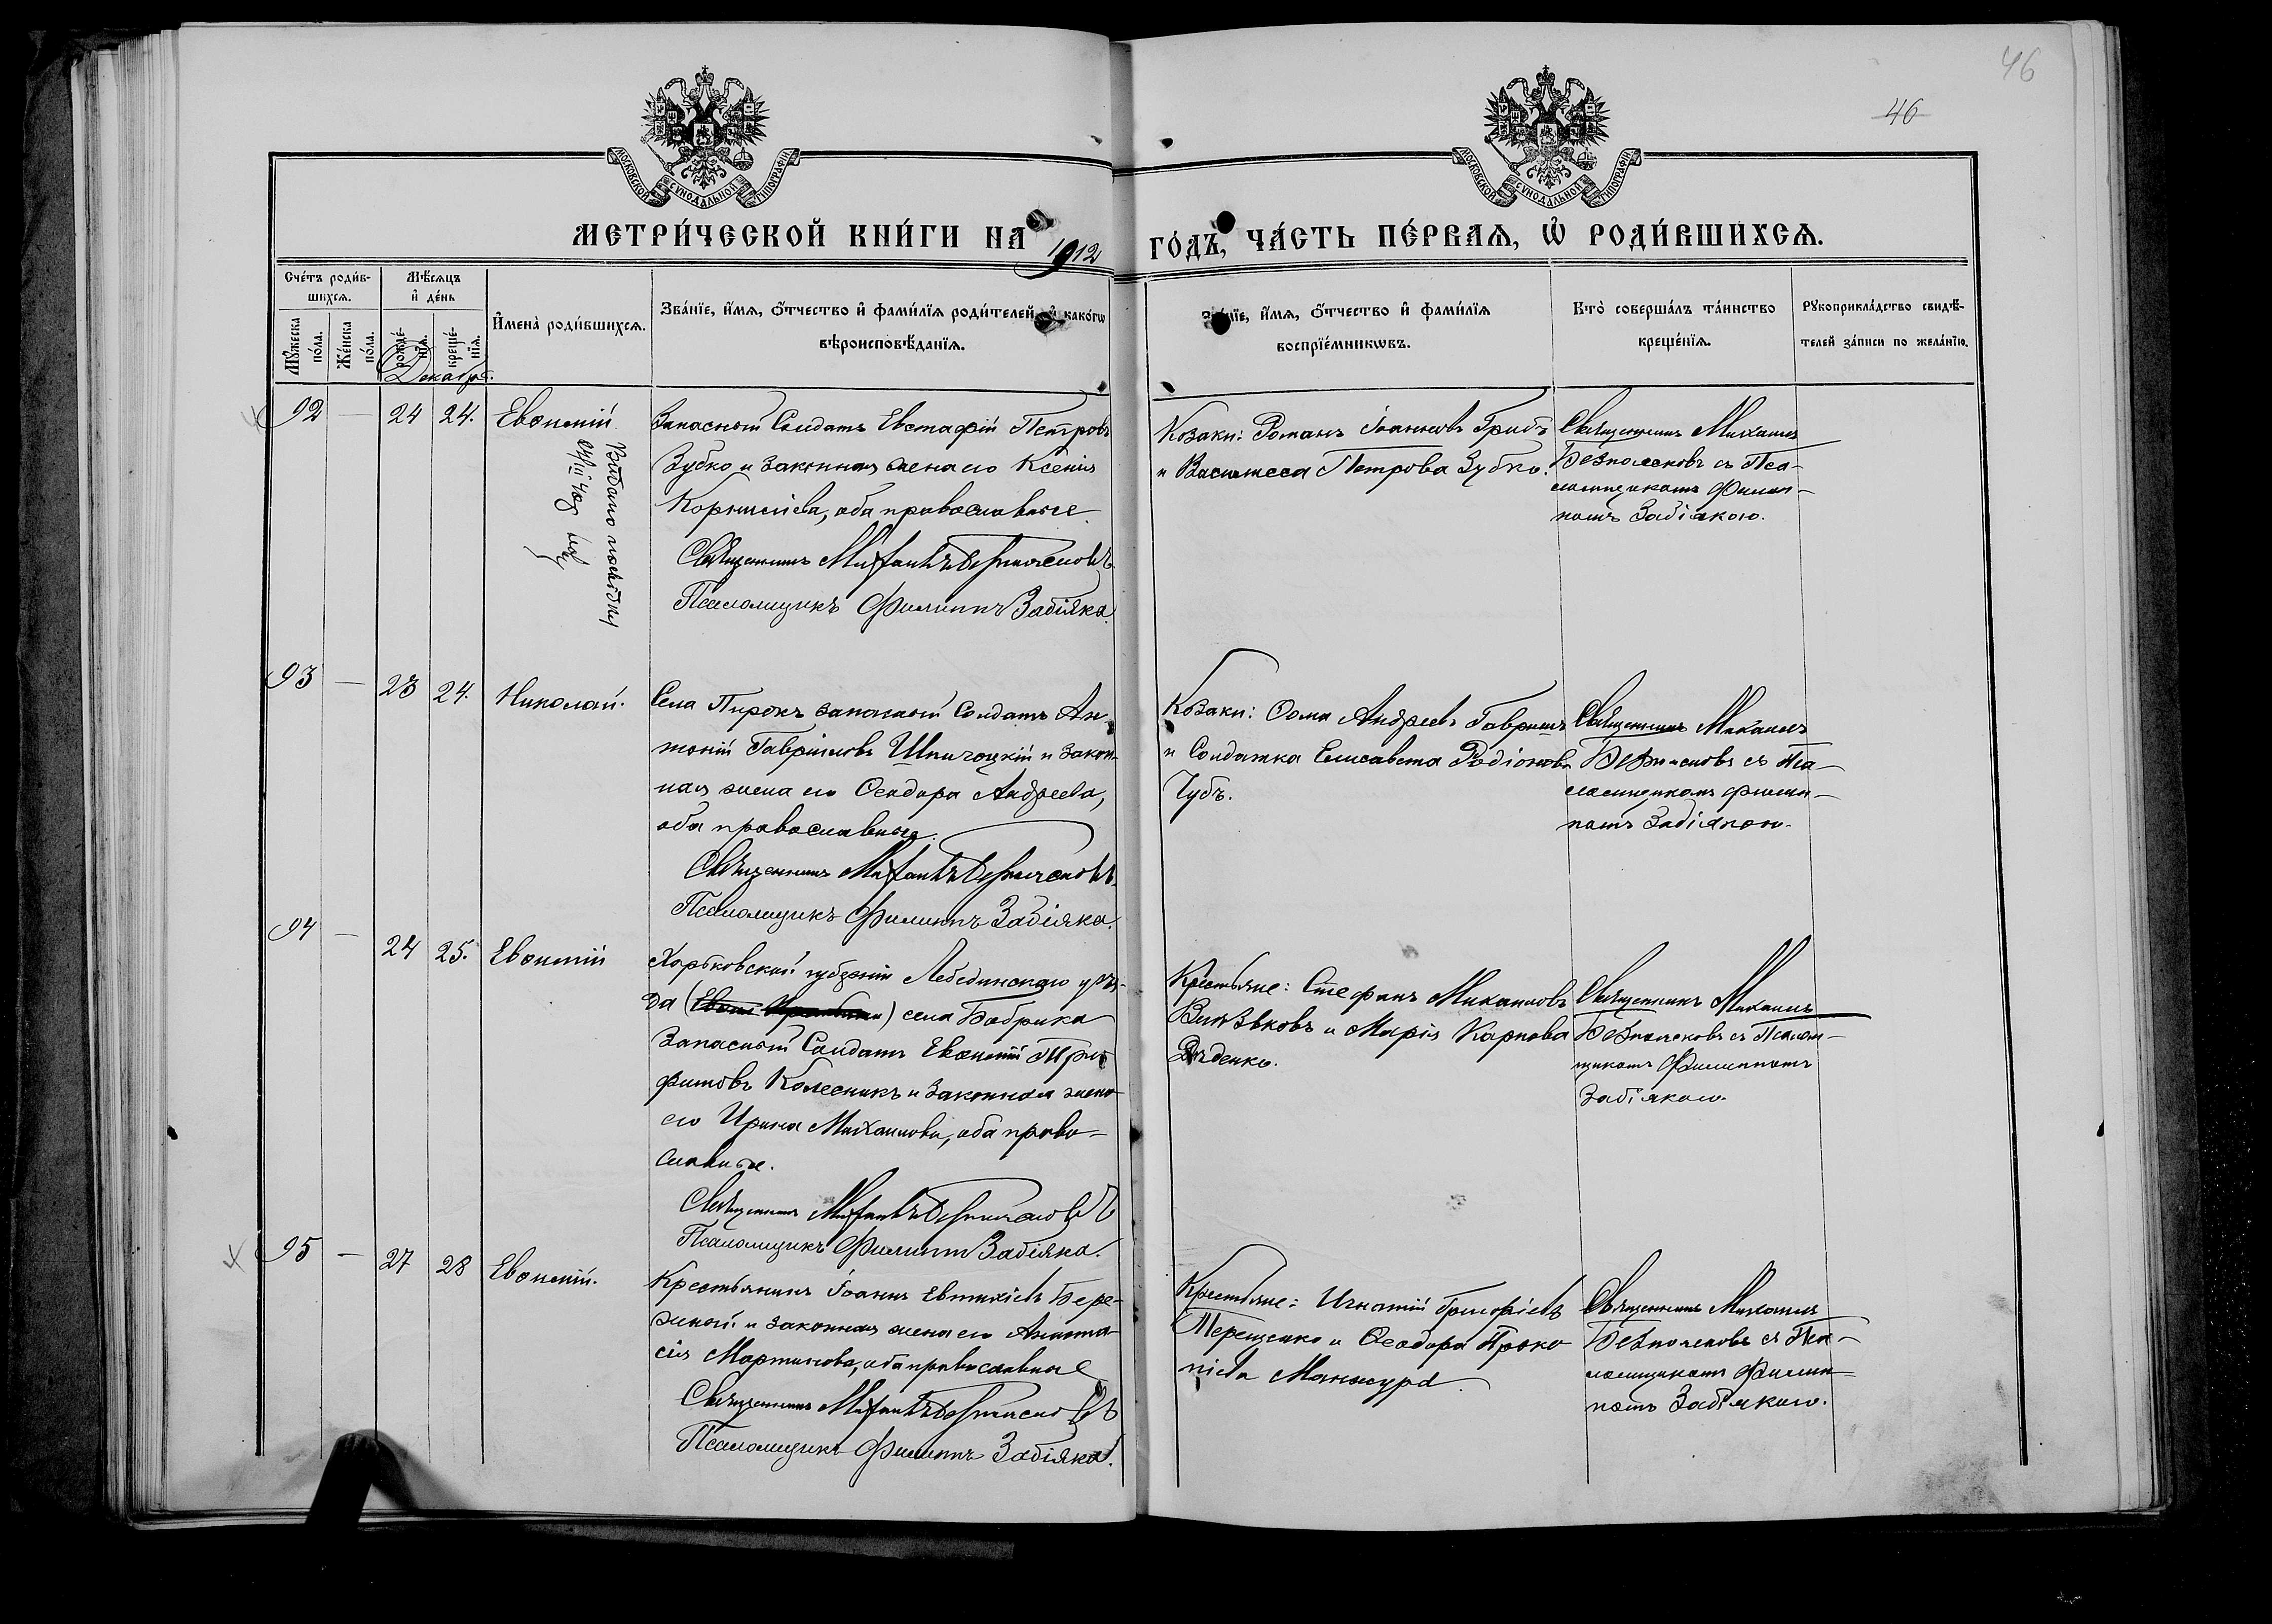 46
46
МОСКОВСКОЙ СѴНОДАЛЬНОЙ ТИПОГРАФІИ
МОСКОВСКОЙ СѴНОДАЛЬНОЙ ТИПОГРАФІИ
МЕТРИ́ЧЕСКОЙ КНИ́ГИ НА 1912 ГО́ДЪ, ЧА́СТЬ ПЕ́РВАЯ, Ѡ҆ РОДИ́ВШИХСЯ.
Сче́тъ роди́в-
шихся.
Мѣ́сяцъ
и҆ де́нь
Мꙋ́жеска
по́ла.
Же́нска
по́ла.
рожде́-
нїя.
креще́-
нїя.
И҆мена̀ роди́вшихся.
Зва́нїе, и҆́мя, ѻ҆́тчество и҆ фами́лїя роди́телей, и҆ како́гѡ
вѣроисповѣ́данїя.
Зва́нїе, и҆́мя, ѻ҆́тчество и҆ фами́лїя
воспрїе́мникѡвъ.
Кто̀ соверша́лъ та́инство
креще́нїя.
Рꙋкоприкла́дство свидѣ́-
телей за́писи по жела́нїю.
Декабрь.
92 — 24 24. Евѳимій
Видано посвідку
Запасный Солдатъ Евстафій Петровъ
Зубко и законная жена его Ксенія
Корнилиева, оба православные
Священникъ Михаилъ Безполсновъ
Псаломщикъ Филиппъ Забіяка.
Козаки: Романъ Іоанновъ Грибъ
и Василисса Петрова Зубко.
Священникъ Михаилъ
Безполсновъ съ Пса-
ломщикомъ Филип-
помъ Забіякою.
93 — 23 24. Николай.
Села Пирокъ запасный Солдатъ Ан-
тоній Гавріиловъ Шпичоцкій и закон-
ная жена его Ѳеодора Андреева,
оба православные.
Священникъ Михаилъ Безполсновъ
Псаломщикъ Филиппъ Забіяка.
Козаки: Ѳома Андреевъ Гавришъ
и Солдатка Елисавета Родіонова
Чубъ.
Священникъ Михаилъ
Безполсновъ съ Пса-
ломщикомъ Филип-
помъ Забіякою.
94 — 24 25. Евѳимій
Харьковской губерніи Лебединскаго уѣз-
да села Бобрика
Запасный Солдатъ Евѳимій Три-
фитовъ Колесникъ и законная жена
его Ирина Михаилова, оба право-
славные.
Священникъ Михаилъ Безполсновъ
Псаломщикъ Филиппъ Забіяка.
Крестьяне: Стефанъ Михаиловъ
и Марія Карпова
Дѣденко.
Священникъ Михаилъ
Безполсновъ съ Псалом-
щикомъ Филиппомъ
Забіякою.
95 — 27 28 Евѳимій.
Крестьянинъ Іоаннъ Евтихіевъ Бере-
жный и законная жена его Анаста-
сія Мартинова, оба православные
Священникъ Михаилъ Безполсновъ
Псаломщикъ Филиппъ Забіяка.
Крестьяне: Игнатій Григоріевъ
Терещенко и Ѳеодора Проко-
піева Манжура.
Священникъ Михаилъ
Безполсновъ съ Пса-
ломщикомъ Филип-
помъ Забіякою.